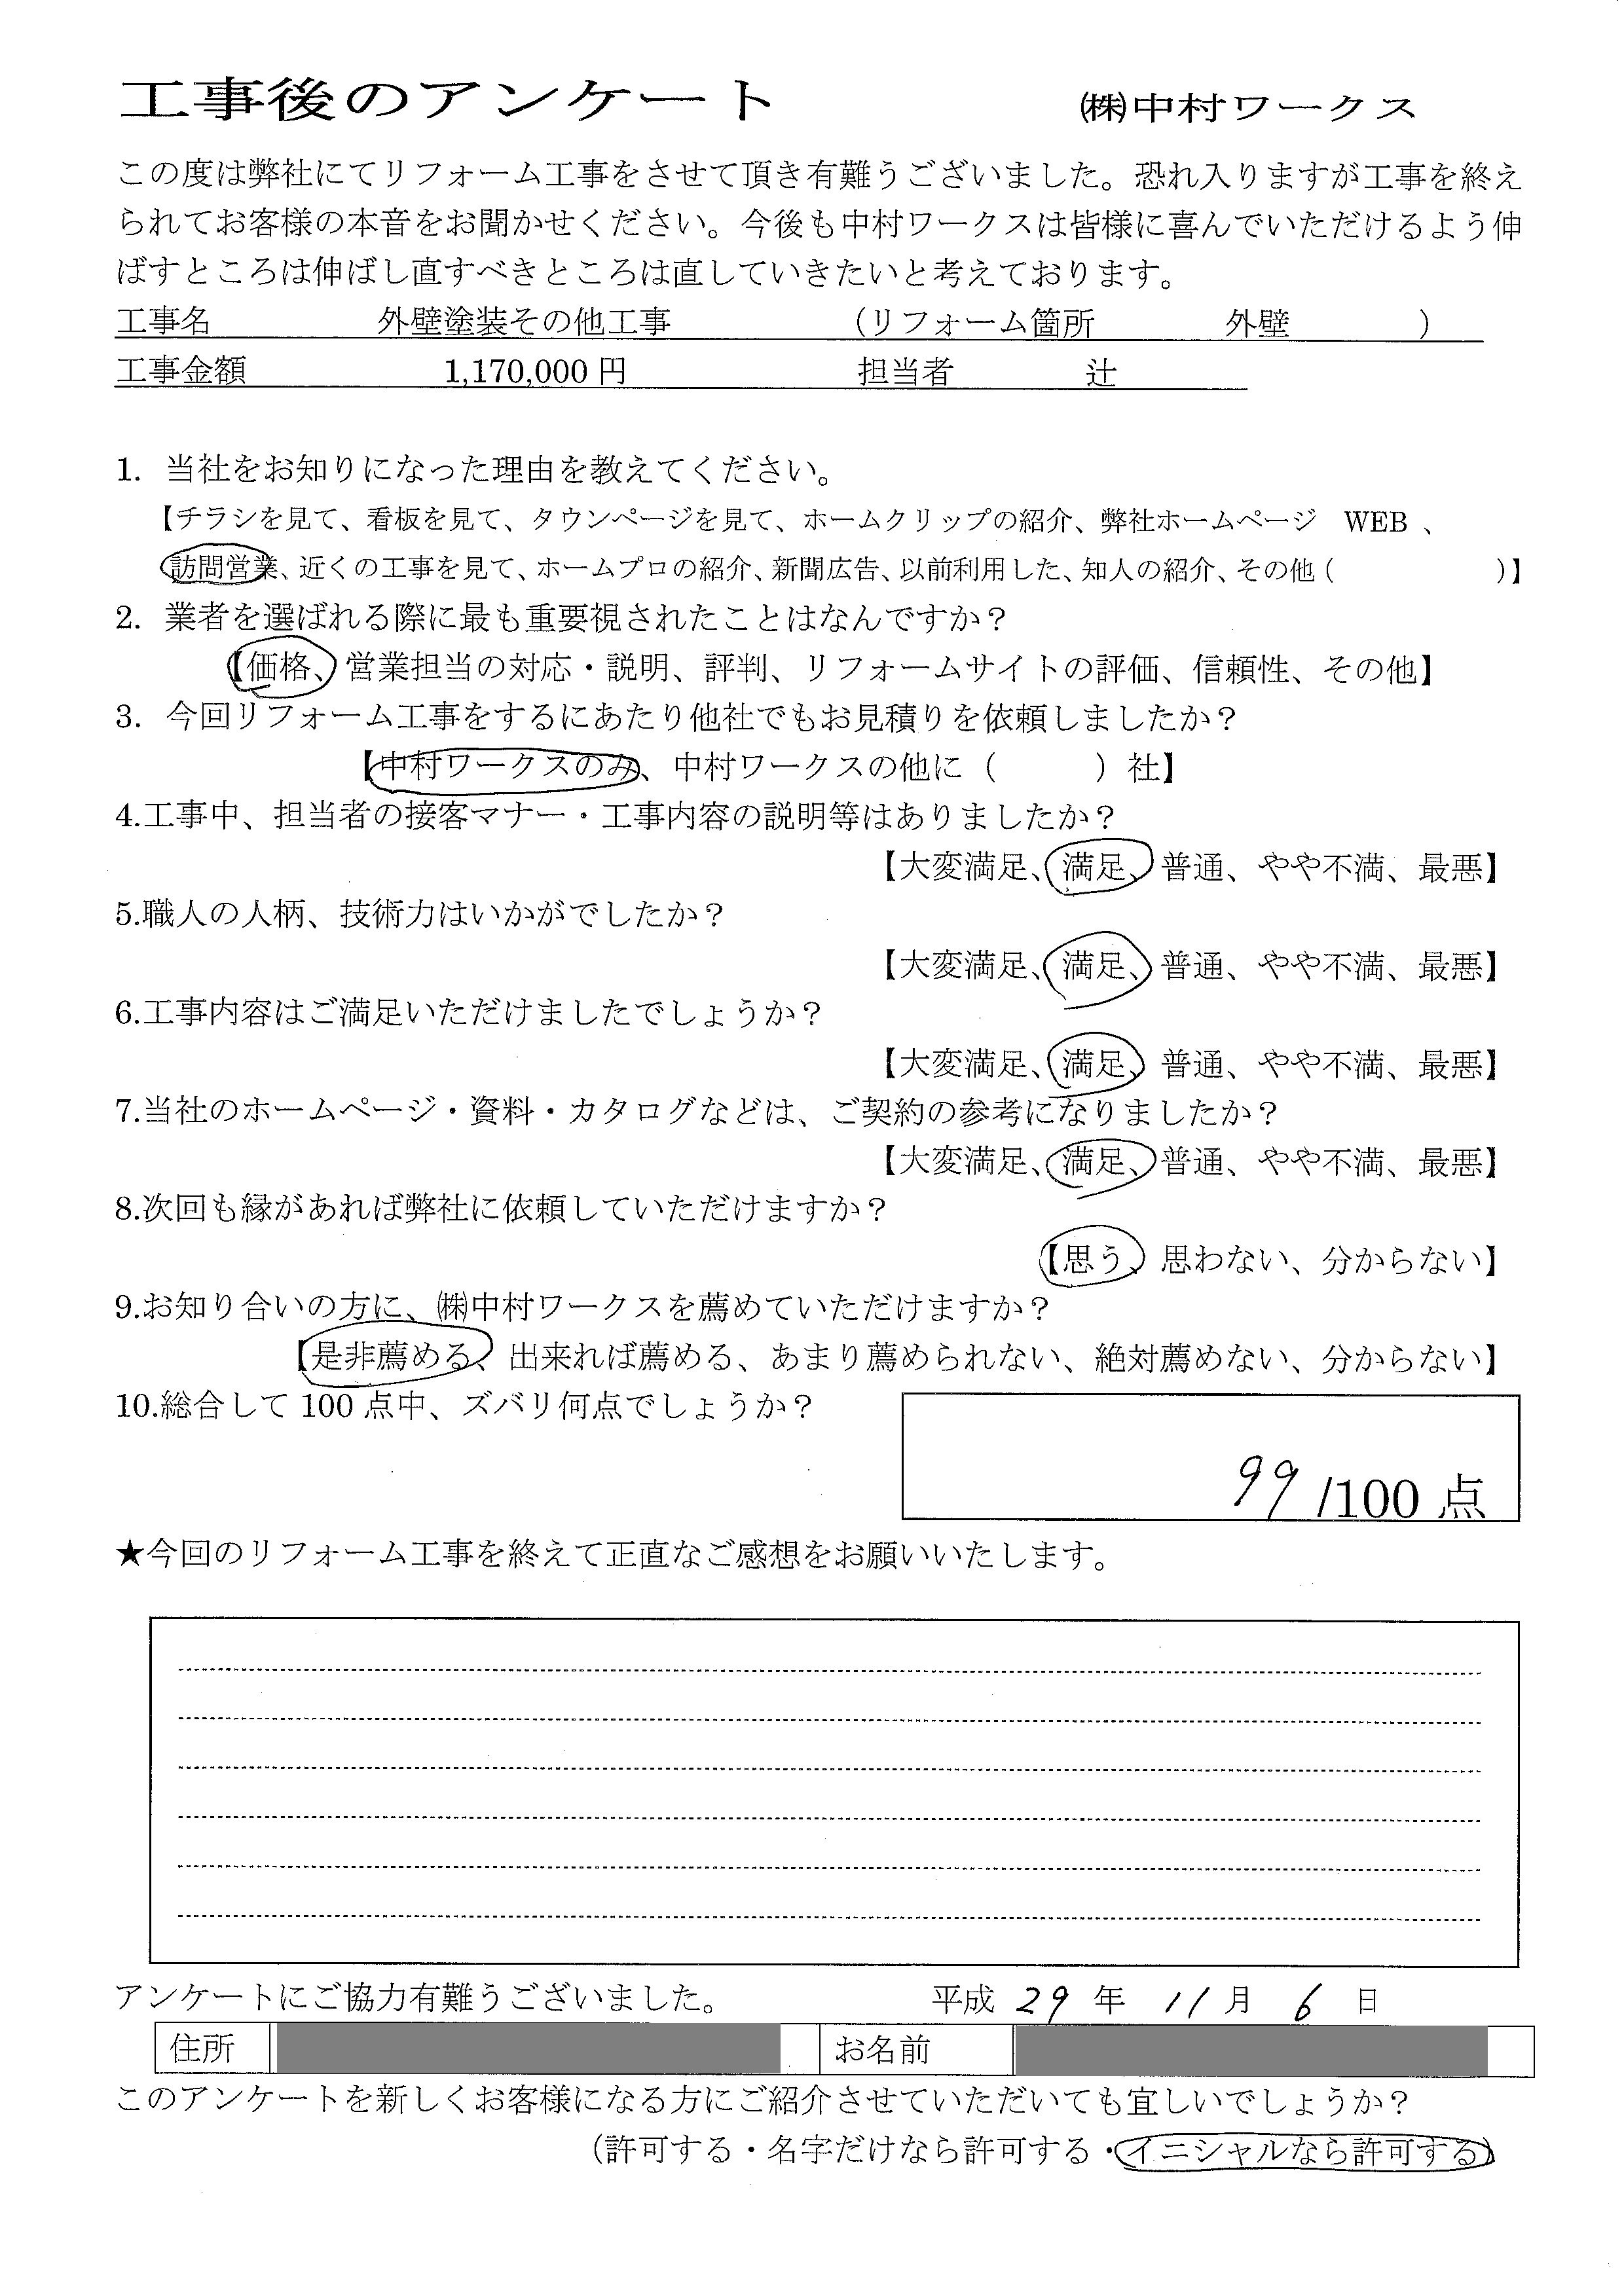 工事後のアンケート ㈱中村ワークス
この度は弊社にてリフォーム工事をさせて頂き有難うございました。恐れ入りますが工事を終え
られてお客様の本音をお聞かせください。今後も中村ワークスは皆様に喜んでいただけるよう伸
ばすところは伸ばし直すべきところは直していきたいと考えております。
工事名 外壁塗装その他工事 （リフォーム箇所 外壁 ）
工事金額 1,170,000 円 担当者 辻
1. 当社をお知りになった理由を教えてください。
【チラシを見て、看板を見て、タウンページを見て、ホームクリップの紹介、弊社ホームページ WEB 、
訪問営業、近くの工事を見て、ホームプロの紹介、新聞広告、以前利用した、知人の紹介、その他（ ）】
2. 業者を選ばれる際に最も重要視されたことはなんですか？
【価格、営業担当の対応・説明、評判、リフォームサイトの評価、信頼性、その他】
3. 今回リフォーム工事をするにあたり他社でもお見積りを依頼しましたか？
【中村ワークスのみ、中村ワークスの他に（ ）社】
4.工事中、担当者の接客マナー・工事内容の説明等はありましたか？
【大変満足、満足、普通、やや不満、最悪】
5.職人の人柄、技術力はいかがでしたか？
【大変満足、満足、普通、やや不満、最悪】
6.工事内容はご満足いただけましたでしょうか？
【大変満足、満足、普通、やや不満、最悪】
7.当社のホームページ・資料・カタログなどは、ご契約の参考になりましたか？
【大変満足、満足、普通、やや不満、最悪】
8.次回も縁があれば弊社に依頼していただけますか？
【思う、思わない、分からない】
9.お知り合いの方に、㈱中村ワークスを薦めていただけますか？
【是非薦める、出来れば薦める、あまり薦められない、絶対薦めない、分からない】
10.総合して 100 点中、ズバリ何点でしょうか？
99 /100 点
★今回のリフォーム工事を終えて正直なご感想をお願いいたします。
アンケートにご協力有難うございました。 平成 29 年 11 月 6 日
住所 お名前
このアンケートを新しくお客様になる方にご紹介させていただいても宜しいでしょうか？
（許可する・名字だけなら許可する・イニシャルなら許可する）